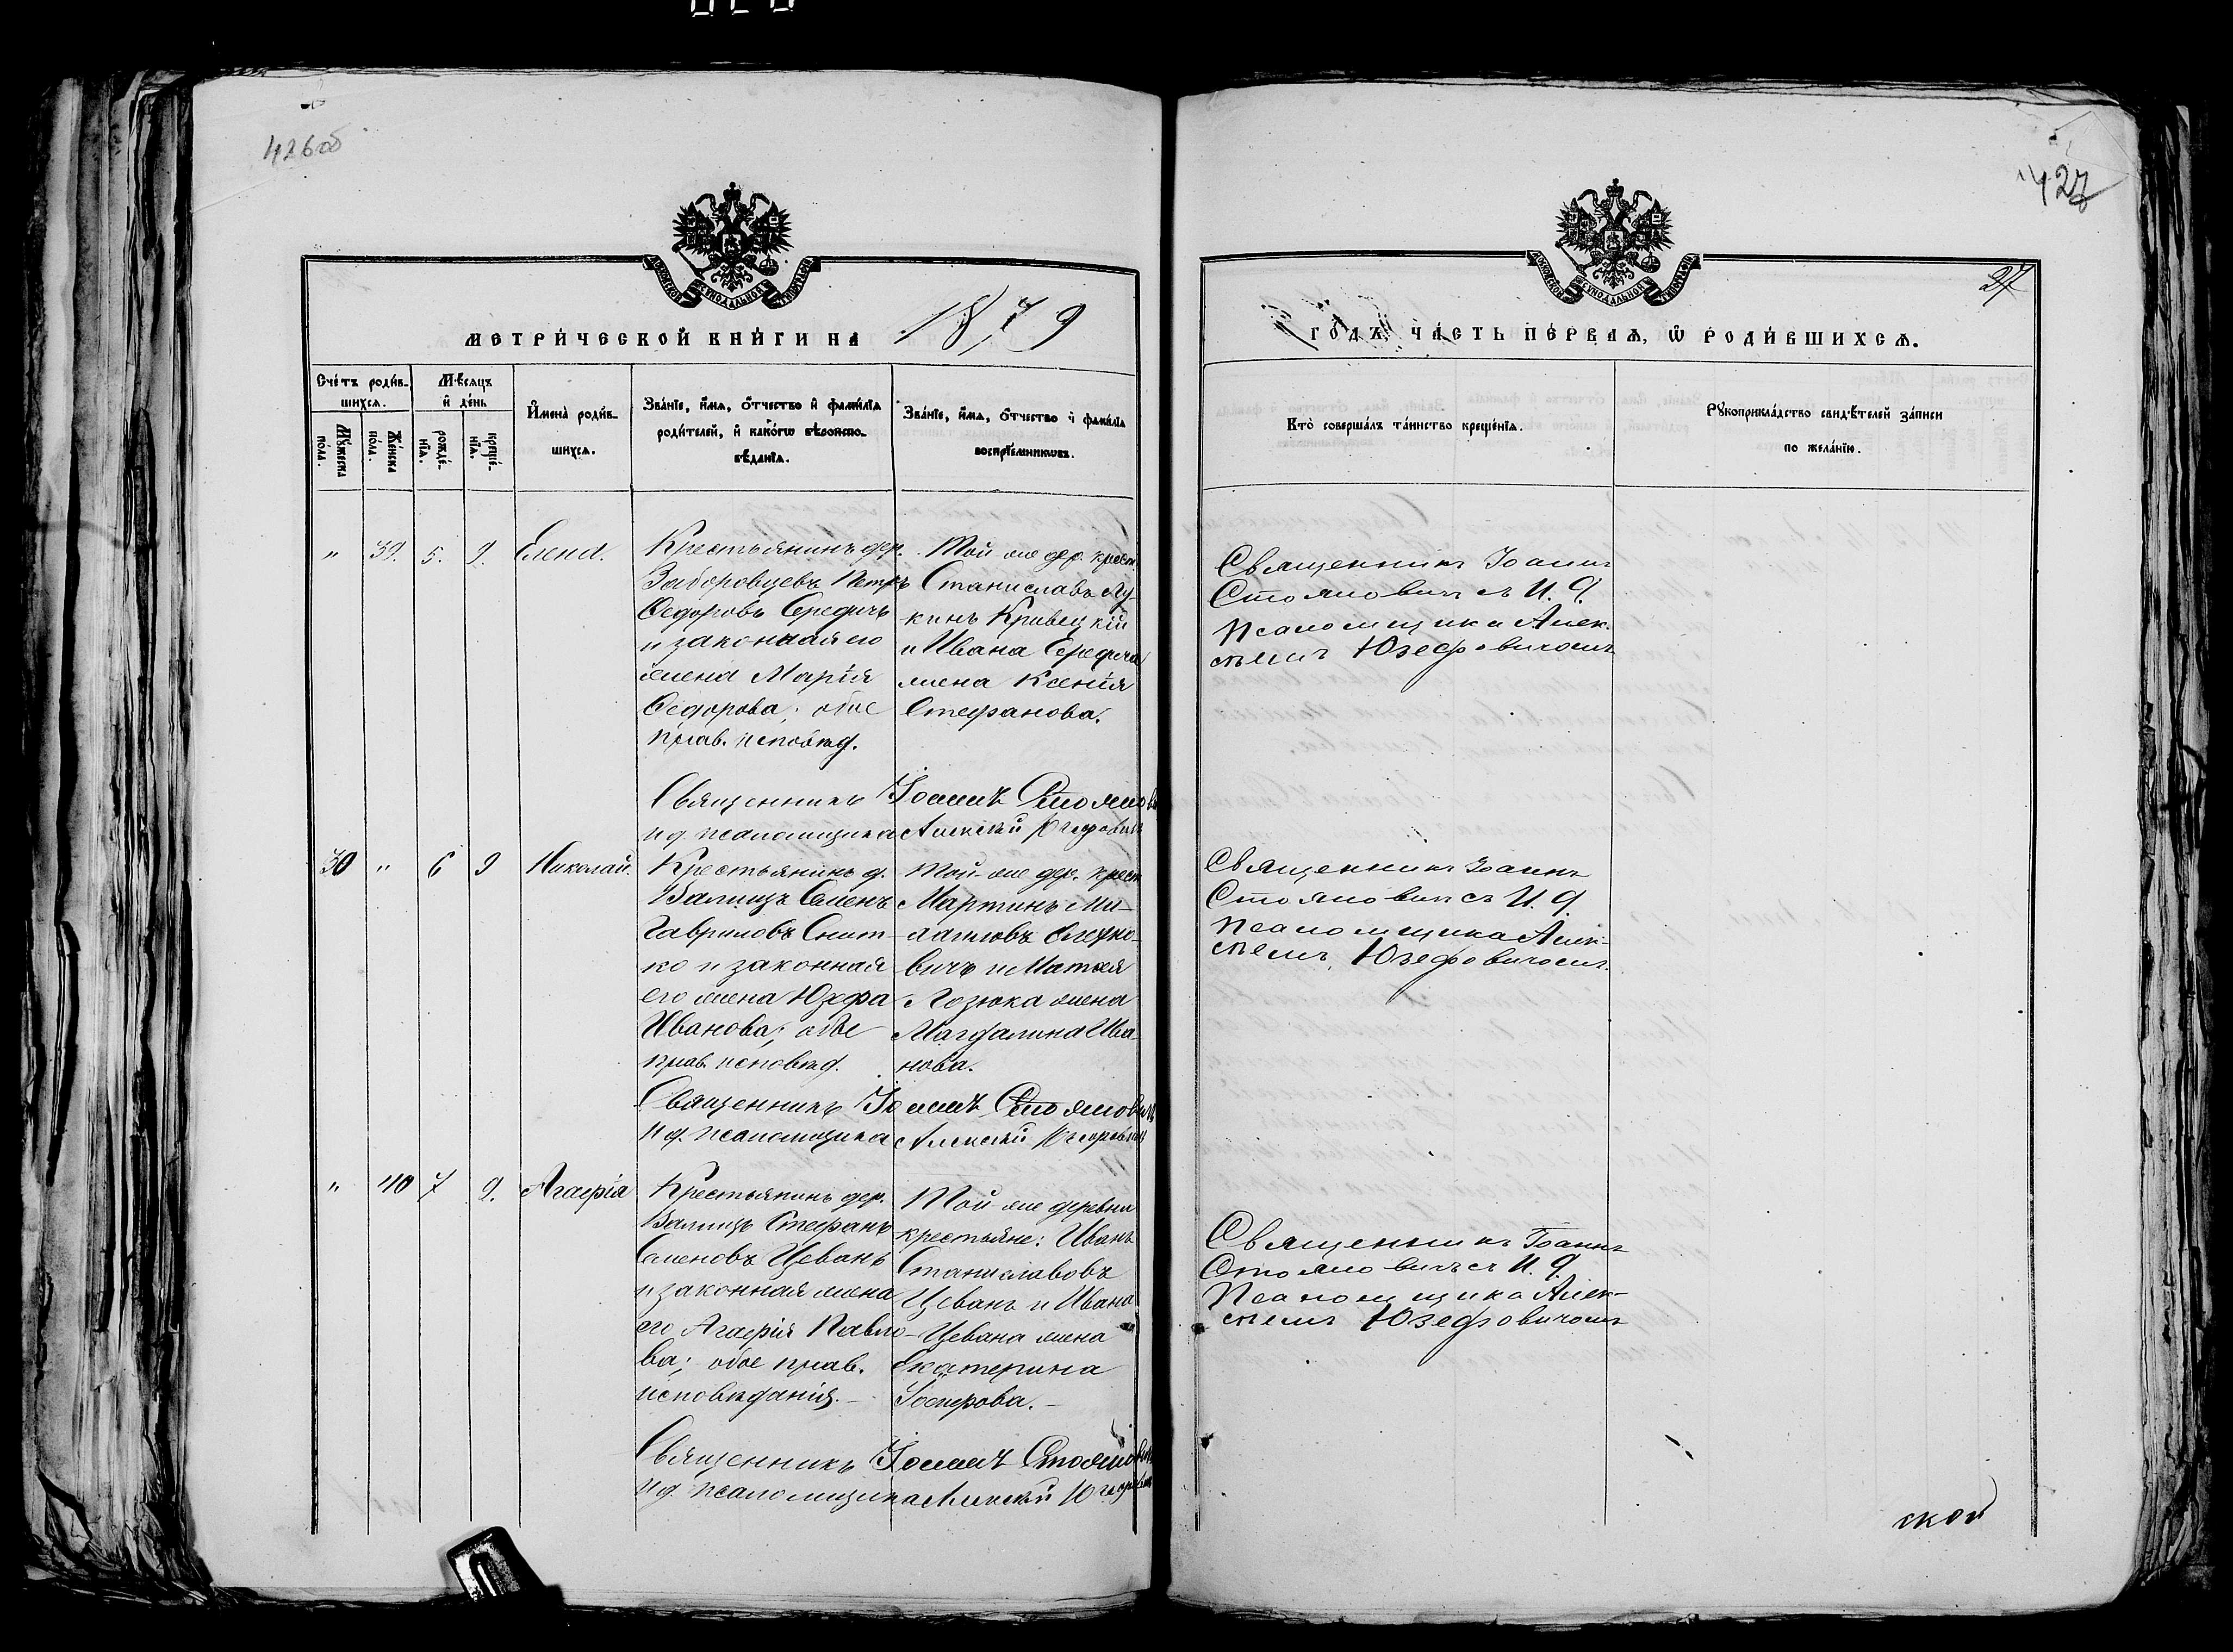 426об
427
27
МОСКОВСКОЙ СѴНОДАЛЬНОЙ ТИПОГРАФІИ
МОСКОВСКОЙ СѴНОДАЛЬНОЙ ТИПОГРАФІИ
МЕТРИ́ЧЕСКОЙ КНИ́ГИ НА 1879
ГО́ДЪ ЧА́СТЬ ПЕ́РВАѦ, Ѡ РОДИ́ВШИХСѦ.
Сче́тъ роди́в-
шихсѧ.
Мѹжеска по́ла.
Же́нска по́ла.
Мѣ́сѧцъ и де́нь
рожде́-
нїѧ.
креще́-
нїѧ.
Имена̀ роди́в-
шихсѧ.
Зва́нїе, и́мѧ, о́тчество и фами́лїѧ
роди́телей, и како́гѡ вѣроиспо-
вѣ́данїѧ.
Зва́нїе, и́мѧ, о́тчество и фами́лїѧ
воспрїе́мникѡвъ.
Кто̀ соверша́лъ та́инство креще́нїѧ.
Рѹкоприкла́дство свидѣ́телей за́писи
по жела́нїю.
" 39. 5. 9. Елена.
Крестьянинъ дер.
Заборовцевъ Петръ
Ѳедоровъ Середичъ
и законная его
жена Марія
Ѳедорова; обое
прав. исповѣд.
Той же дер. крест.
Станиславъ Лу-
кинъ Кривецкій
и Ивана Середича
жена Ксенія
Стефанова.
Священникъ Іоаннъ
Стояновичъ съ И. д.
Псаломщика Алек-
сѣемъ Юзефовичомъ
Священникъ Іоаннъ Стоянови
и д. псаломщика Алексѣй Юзефовичъ
30 " 6 9 Николай.
Крестьянинъ д.
Валищъ Семенъ
Гавриловъ Снит-
ко и законная
его жена Юзефа
Иванова; обое
прав. исповѣд.
Той же дер. крест
Мартинъ Ми-
вичъ и Матѳея
жена
Магдалина Ива-
нова.
Священникъ Іоаннъ
Стояновичъ съ И. д.
Псаломщика Алек-
сѣемъ Юзефовичомъ.
Священникъ Іоаннъ Стояновичъ
и д. псаломщика Алексѣй Юзефовичъ
" 40 7 9. Агафія
Крестьянинъ дер.
Валищъ Стефанъ
Семеновъ Цеванъ
и законная жена
его Агафія Павло-
ва; обое прав.
исповѣданія.-
Той же деревни
крестьяне: Иванъ
Станиславовъ
Цеванъ и Ивана
Цевана жена
Екатерина
Іосифова.-
Священникъ Іоаннъ
Стояновичъ съ И. д.
Псаломщика Алек-
сѣемъ Юзефовичомъ
Священникъ Іоаннъ Стоянович
и д. псаломщика Алексѣй Юзефович
ской